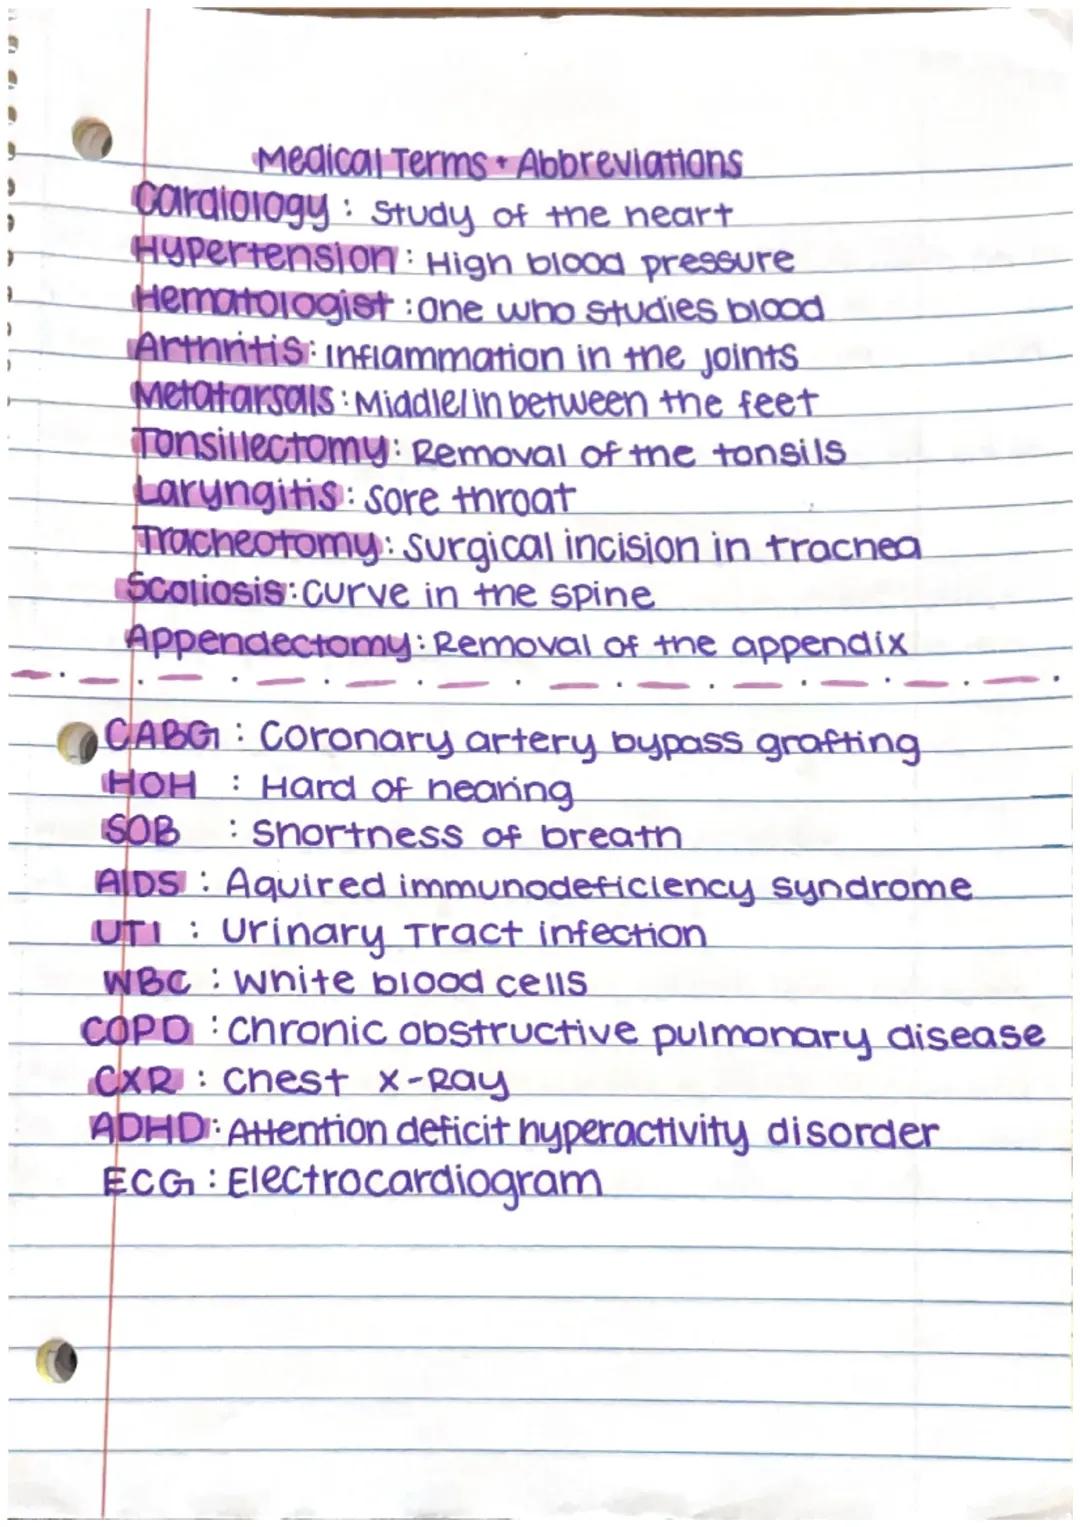 Medical Terms + Abbreviations
Cardiology: Study of the heart
Hypertension: High blood pressure
Hematologist: One who studies blood
Arthritis: Inflammation in the joints
Metatarsals: Middle/in between the feet
Tonsillectomy: Removal of the tonsils
Laryngitis: Sore throat
Tracheotomy: Surgical incision in trachea
Scoliosis: Curve in the spine
Appendectomy: Removal of the appendix
CABG: Coronary artery bypass grafting
HOH: Hard of hearing
SOB: Shortness of breath
AIDS: Aquired immunodeficiency syndrome
UTI: Urinary Tract infection
WBC: White blood cells
COPD: Chronic obstructive pulmonary disease
CXR: Chest X-Ray
ADHD: Attention deficit hyperactivity disorder
ECG: Electrocardiogram